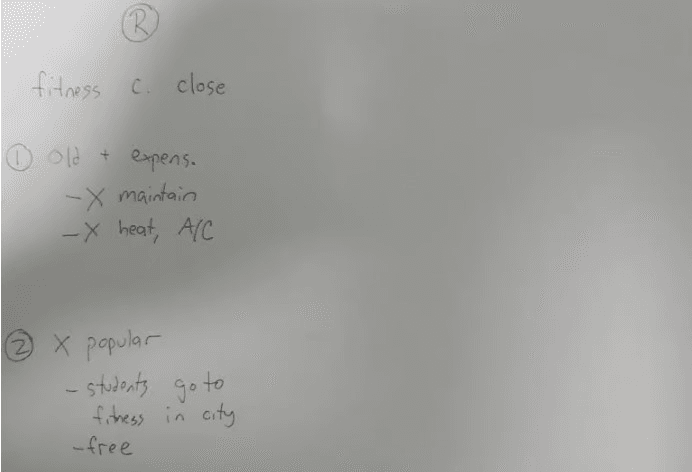 R
fitness c. close
① Old + expens.
- X maintain
- X heat, A/C
② X popular
- students go to
fitness in city
- free